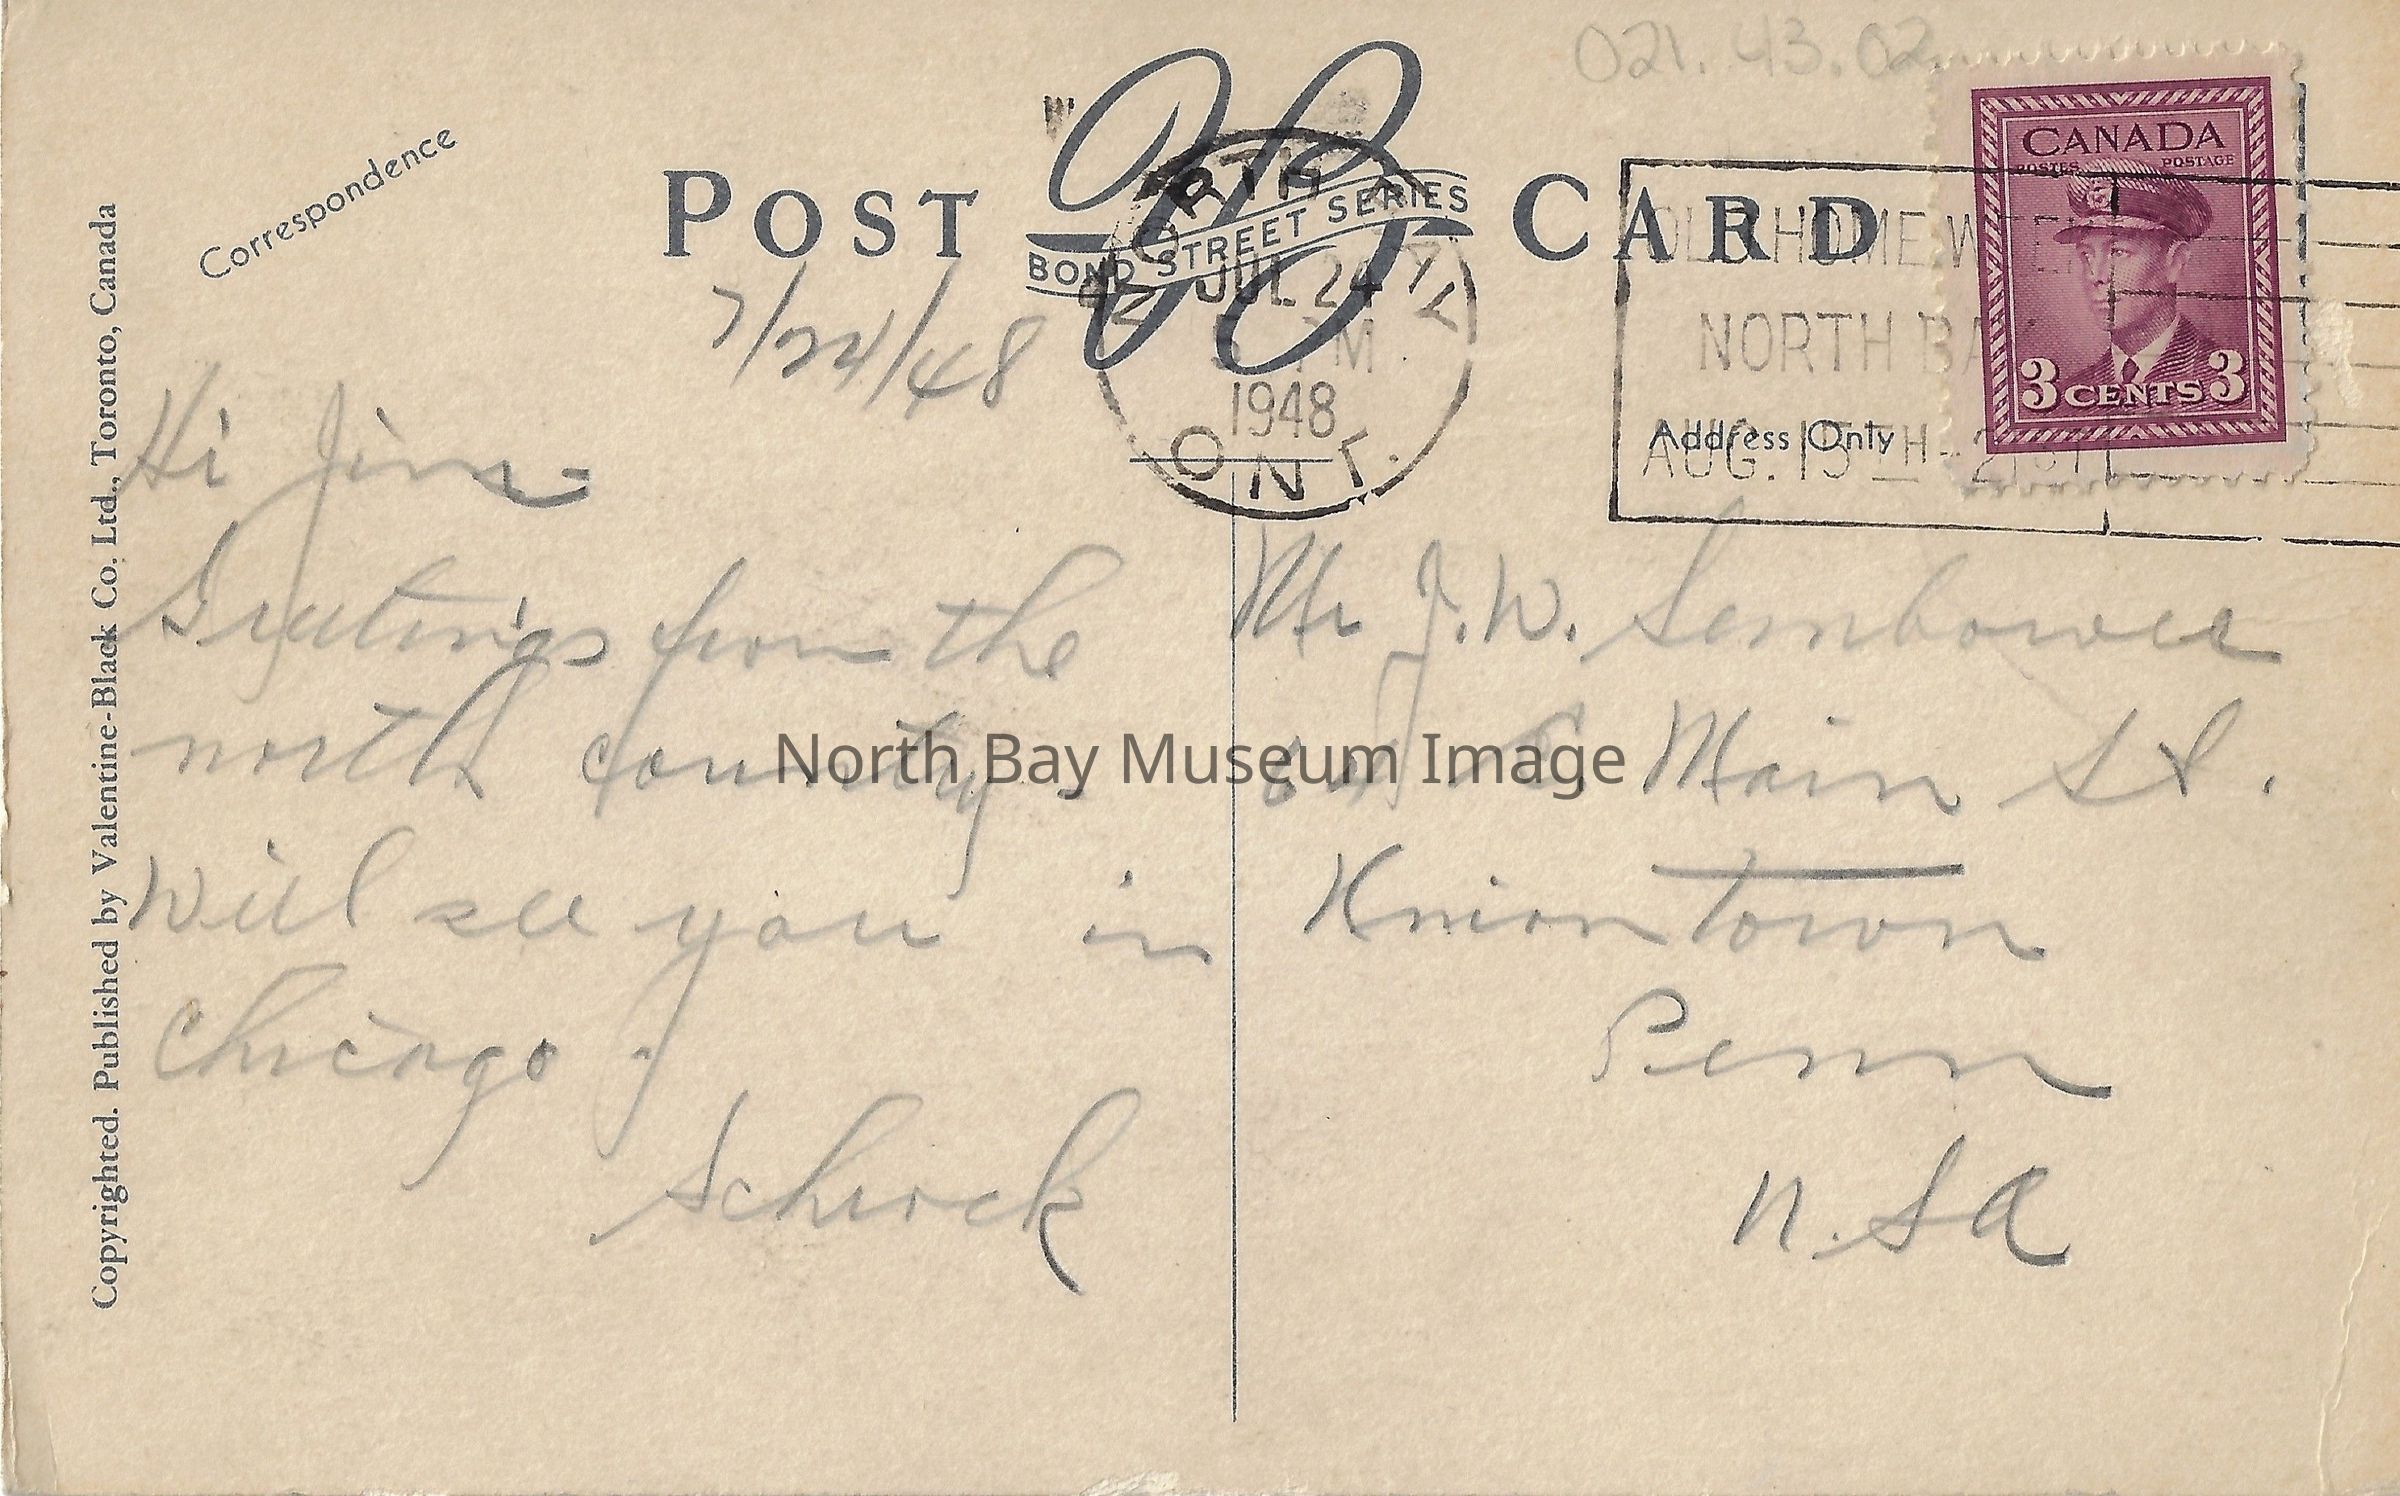 021.43.02
Correspondence
POST CARD
BOND STREET SERIES
NORTH BAY
JUL 24
PM
1948
ONT.
OLD HOME WEEK
NORTH BAY
AUG. 15TH - 21ST
CANADA
POSTES POSTAGE
3 CENTS 3
Address Only
7/24/48
Hi Jim -
Greetings from the
north country
Will see you in
Chicago.
Schrock
Mr J.W. Sembower
Main St.
Uniontown
Penn
U.SA
Copyrighted. Published by Valentine-Black Co. Ltd., Toronto, Canada
North Bay Museum Image